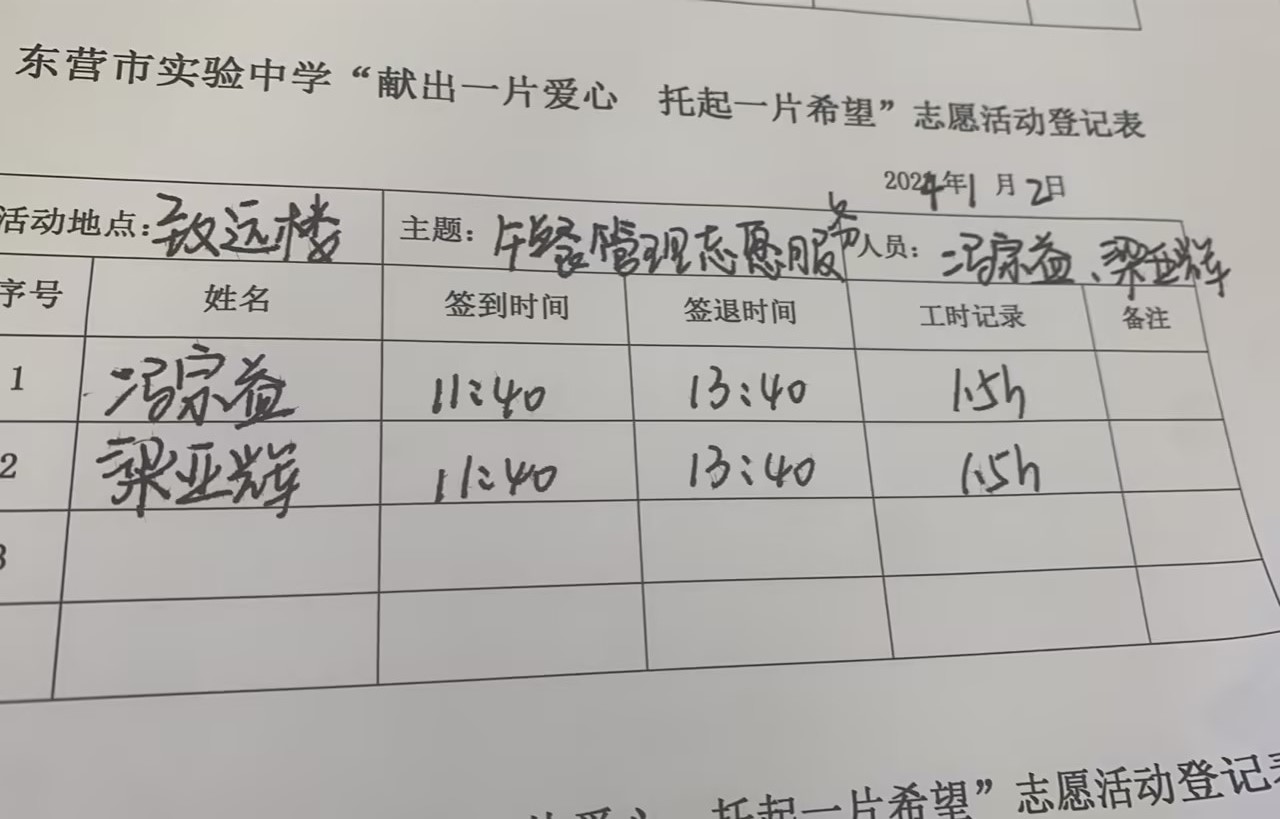 东营市实验中学“献出一片爱心 托起一片希望”志愿活动登记表
2024年1月2日
活动地点:致远楼 主题:午餐管理志愿服务 人员:冯宗益、梁亚辉
序号 姓名 签到时间 签退时间 工时记录 备注
1 冯宗益 11:40 13:40 1.5h
2 梁亚辉 11:40 13:40 1.5h
3
片爱心 托起一片希望”志愿活动登记表